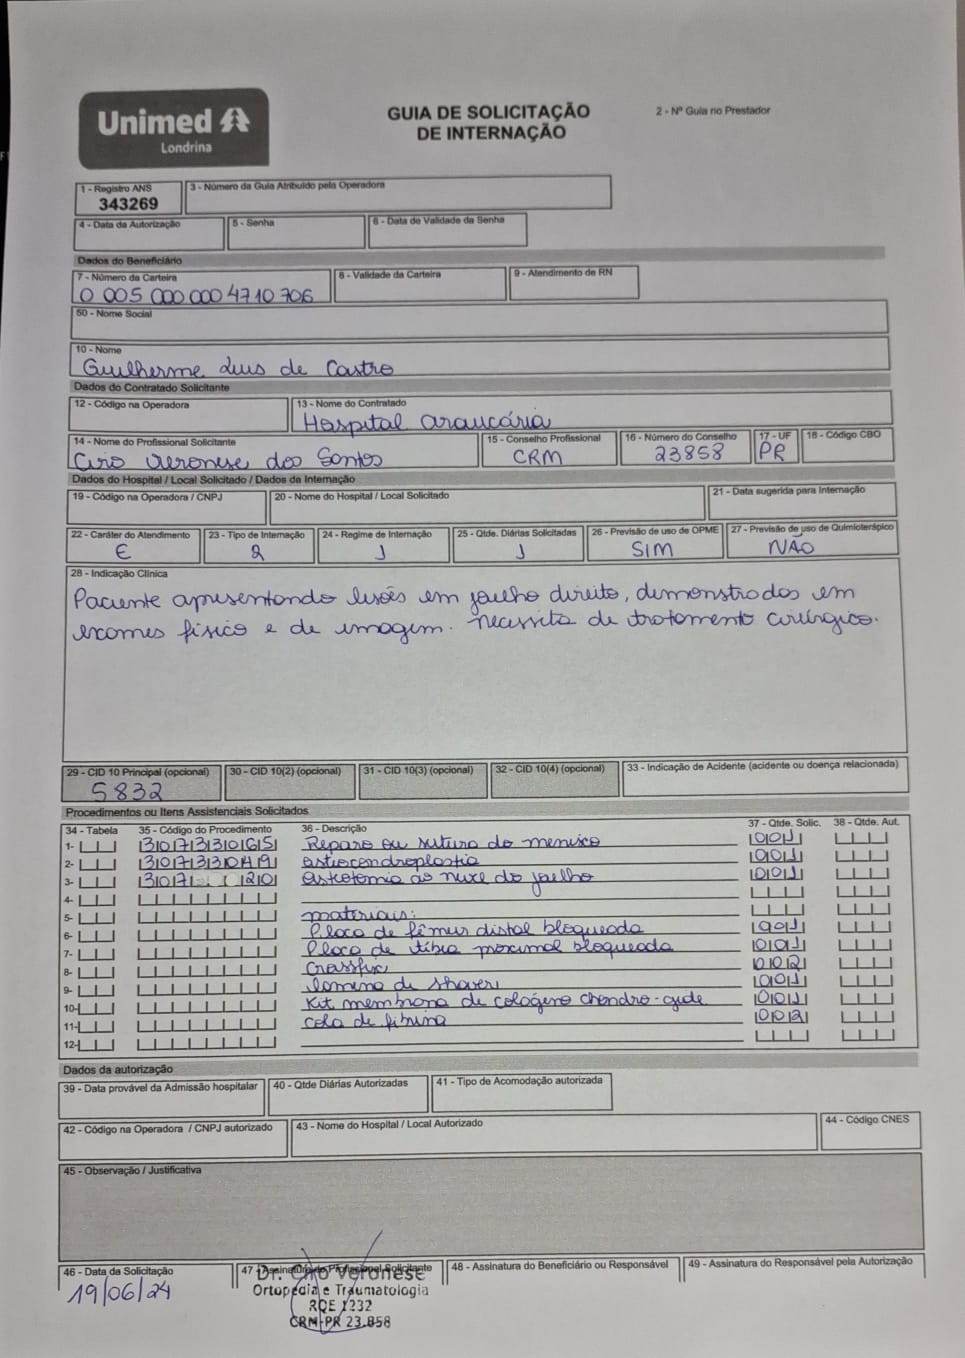 Unimed
Londrina
GUIA DE SOLICITAÇÃO
DE INTERNAÇÃO
2 - Nº Guia no Prestador
1 - Registro ANS
343269
3 - Número da Guia Atribuído pela Operadora
4 - Data da Autorização
5 - Senha
6 - Data de Validade da Senha
Dados do Beneficiário
7 - Número da Carteira
0 005 000 000 4710 706
8 - Validade da Carteira
9 - Atendimento de RN
50 - Nome Social
10 - Nome
Guilherme Luis de Castro
Dados do Contratado Solicitante
12 - Código na Operadora
13 - Nome do Contratado
Hospital araucária
14 - Nome do Profissional Solicitante
Ciro Veronese dos Santos
15 - Conselho Profissional
CRM
16 - Número do Conselho
23858
17 - UF
PR
18 - Código CBO
Dados do Hospital / Local Solicitado / Dados da Internação
19 - Código na Operadora / CNPJ
20 - Nome do Hospital / Local Solicitado
21 - Data sugerida para Internação
22 - Caráter do Atendimento
E
23 - Tipo de Internação
2
24 - Regime de Internação
1
25 - Qtde. Diárias Solicitadas
1
26 - Previsão de uso de OPME
SIM
27 - Previsão de uso de Quimioterápico
NÃO
28 - Indicação Clínica
Paciente apresentando lesões em joelho direito, demonstrados em
exames físico e de imagem. necessita de tratamento cirúrgico.
29 - CID 10 Principal (opcional)
S832
30 - CID 10(2) (opcional)
31 - CID 10(3) (opcional)
32 - CID 10(4) (opcional)
33 - Indicação de Acidente (acidente ou doença relacionada)
Procedimentos ou Itens Assistenciais Solicitados
34 - Tabela 35 - Código do Procedimento 36 - Descrição 37 - Qtde. Solic. 38 - Qtde. Aut.
1- Reparo ou sutura do menisco 001
2- osteocondroplastia 001
3- 001
4-
5- materiais:
6- Placa de fêmur distal bloqueada 001
7- Placa de tíbia proximal bloqueada 001
8- Crassfix 002
9- lamina de shaver 001
10- Kit membrana de colágeno chondro-gide 001
11- cola de fibrina 002
12-
Dados da autorização
39 - Data provável da Admissão hospitalar
40 - Qtde Diárias Autorizadas
41 - Tipo de Acomodação autorizada
42 - Código na Operadora / CNPJ autorizado
43 - Nome do Hospital / Local Autorizado
44 - Código CNES
45 - Observação / Justificativa
46 - Data da Solicitação
19/06/24
47 - Assinatura do Profissional Solicitante
Dr. Ciro Veronese
Ortopedia e Traumatologia
RQE 1232
CRM-PR 23.858
48 - Assinatura do Beneficiário ou Responsável
49 - Assinatura do Responsável pela Autorização